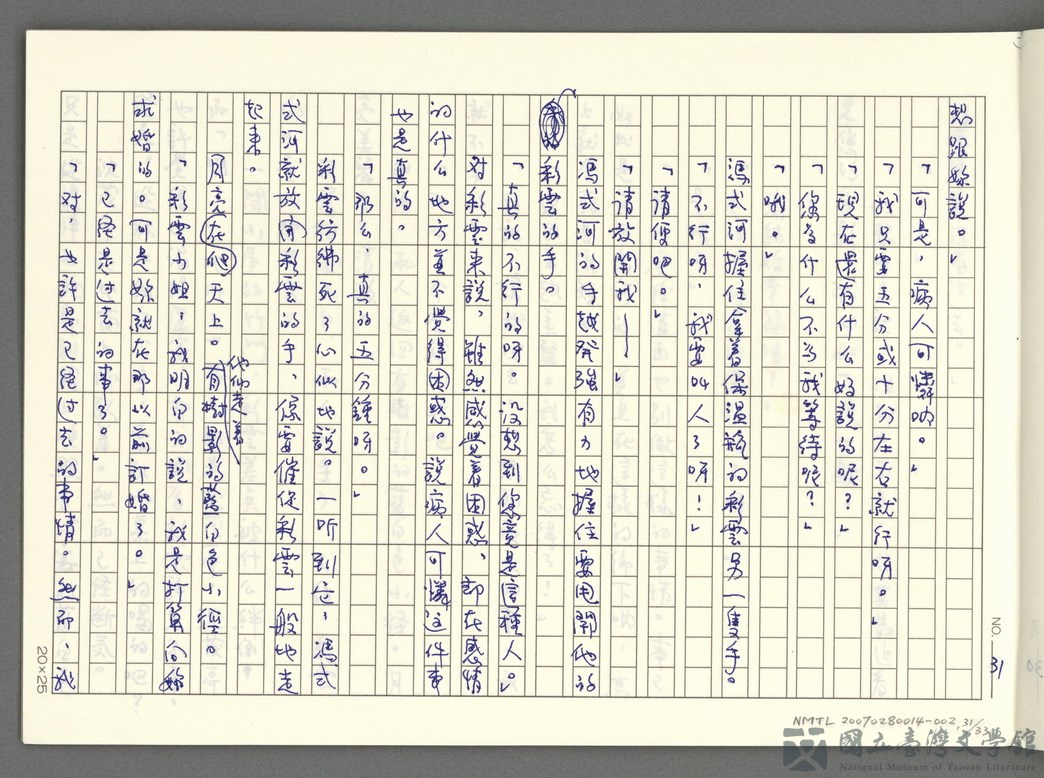 NO. 31
想跟妳說。」
「可是，病人可憐吶。」
「我只要五分或十分左右就行呀。」
「現在還有什么好說的呢？」
「你為什么不为我等待呢？」
「哦。」
馮式河握住拿着保温瓶的彩雲另一隻手。
「不行呀，我要叫人了呀！」
「請便吧。」
「請放開我——」
馮式河的手越発強有力地握住要甩開他的
彩雲的手。
「真的不行的呀。没想到你竟是這種人。」
对彩雲来說，雖然感覺着困惑，却在感情
的什么地方並不覺得困惑。說病人可憐這件事
也是真的。
「那么，真的五分鐘呀。」
彩雲彷彿死了心似地說。一听到它，馮式
式河就放開彩雲的手，像要催促彩雲一般地走
起来。
月亮在爬天上。他們走着有樹影的藍白色小徑。
「彩雲小姐，我明白的說，我是打算向妳
求婚的。可是妳就在那以前訂婚了。」
「已経是过去的事了。」
「对，也許是已経过去的事情。然而，我
20×25
NMTL 20070280014-002 31/33
國立臺灣文學館
National Museum of Taiwan Literature